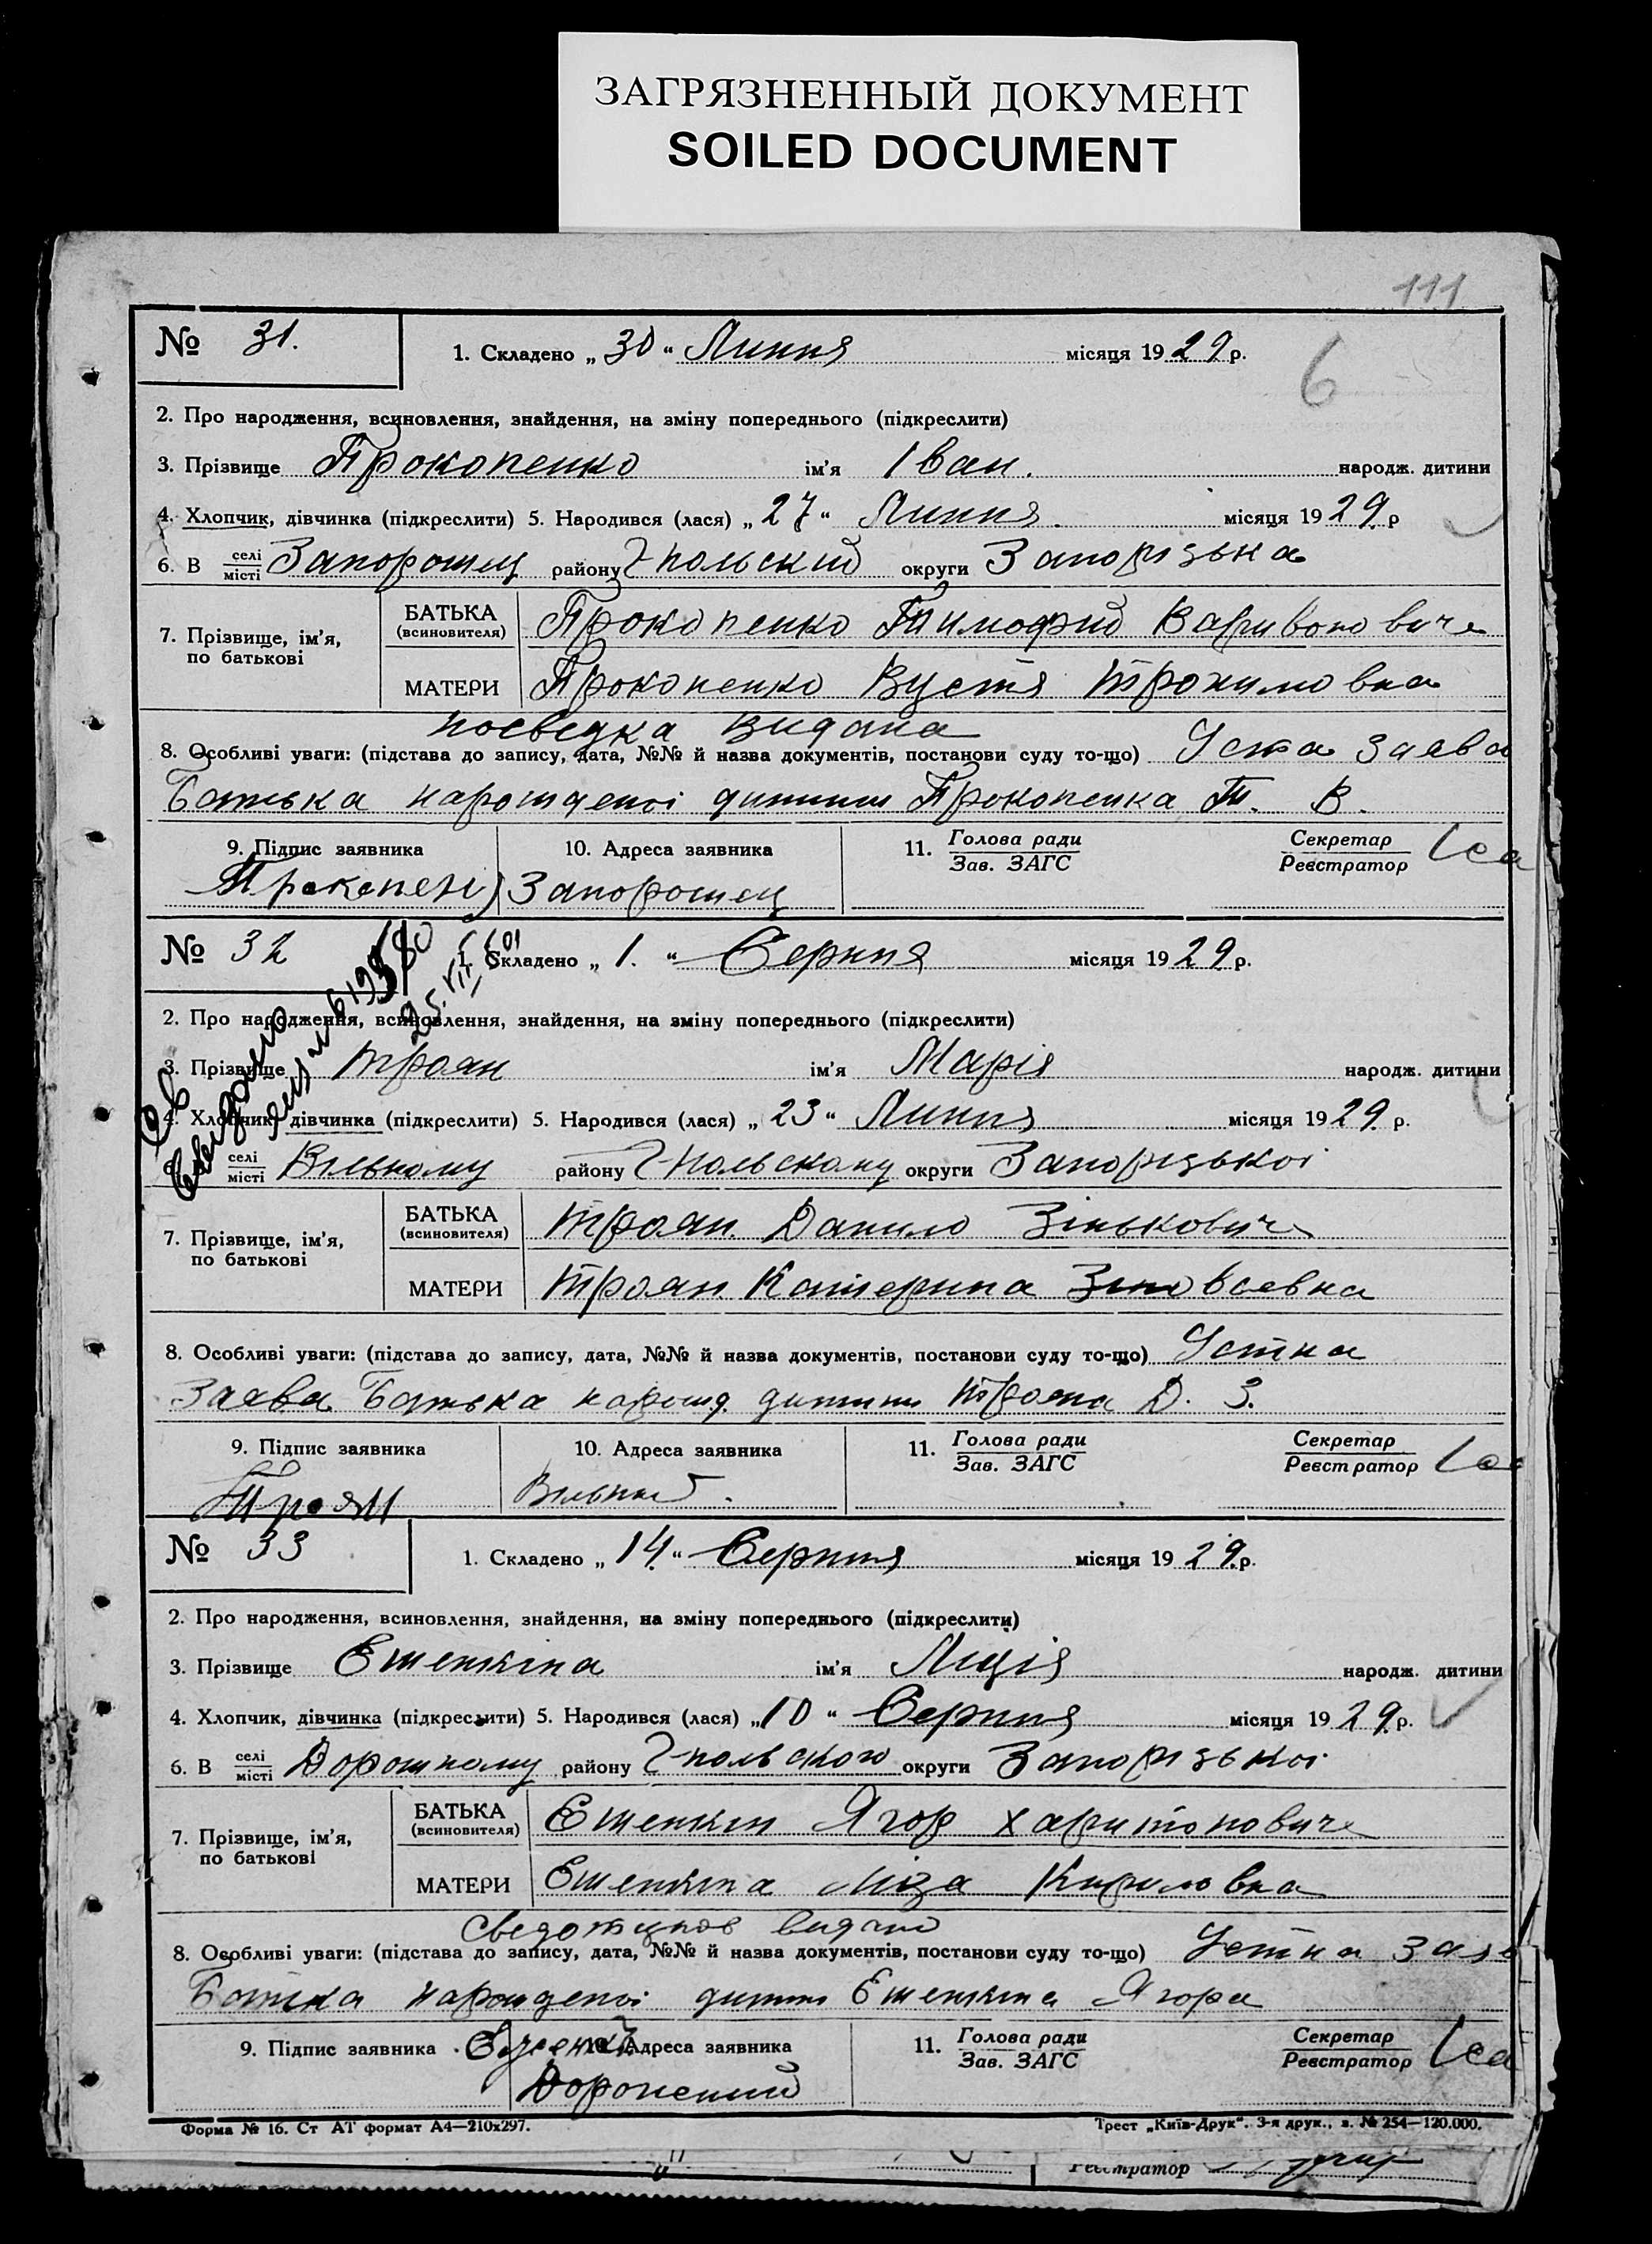 ЗАГРЯЗНЕННЫЙ ДОКУМЕНТ
SOILED DOCUMENT
111
№ 31.
1. Складено „ 30 “ Липня місяця 1929 р.
6
2. Про народження, всиновлення, знайдення, на зміну попереднього (підкреслити)
3. Прізвище Прокопенко ім'я Іван. народж. дитини
4. Хлопчик, дівчинка (підкреслити) 5. Народився (лася) „ 27 “ Липня. місяця 1929 р
6. В селі/місті Запорошец району Г-польский округи Запорізька
7. Прізвище, ім'я, по батькові
БАТЬКА (всиновителя) Прокопенко Тимофий Варивонович
МАТЕРИ Прокопенко Вустя Трохимовна
посвєдка видана
8. Особливі уваги: (підстава до запису, дата, №№ й назва документів, постанови суду то-що) Усна заява
Батька народженої дитини Прокопенка Т. В.
9. Підпис заявника 10. Адреса заявника 11. Голова ради/Зав. ЗАГС Секретар/Реєстратор
Прокопен Запорошец
№ 32
1. Складено „ 1. “ Серпня місяця 1929 р.
2. Про народження, всиновлення, знайдення, на зміну попереднього (підкреслити)
3. Прізвище Троян ім'я Марія народж. дитини
4. Хлопчик, дівчинка (підкреслити) 5. Народився (лася) „ 23 “ Липня місяця 1929 р.
селі/місті Вільному району Г-польскому округи Запорізької
7. Прізвище, ім'я, по батькові
БАТЬКА (всиновителя) Троян Данило Зінькович
МАТЕРИ Троян Катерина
8. Особливі уваги: (підстава до запису, дата, №№ й назва документів, постанови суду то-що) Устна
Заява Батька нарожд. дитини Трояна Д. З.
9. Підпис заявника 10. Адреса заявника 11. Голова ради/Зав. ЗАГС Секретар/Реєстратор
Троян Вільний.
№ 33
1. Складено „ 14 “ Серпня місяця 1929 р.
2. Про народження, всиновлення, знайдення, на зміну попереднього (підкреслити)
3. Прізвище Ешенкіна ім'я Лидія народж. дитини
4. Хлопчик, дівчинка (підкреслити) 5. Народився (лася) „ 10 “ Серпня місяця 1929 р.
6. В селі/місті району Г-польского округи Запорізької
7. Прізвище, ім'я, по батькові
БАТЬКА (всиновителя) Ешенкін Ягор Харитонович
МАТЕРИ Ешенкіна Ліза Кириловна
видано
8. Особливі уваги: (підстава до запису, дата, №№ й назва документів, постанови суду то-що) Устна заяв
Батька народженої дитини Ешенкіна Ягора
9. Підпис заявника 10. Адреса заявника 11. Голова ради/Зав. ЗАГС Секретар/Реєстратор
Форма № 16. Ст АТ формат А4—210х297. Трест „Київ-Друк“. 3-я друк., з. № 254—120.000.
Реєстратор